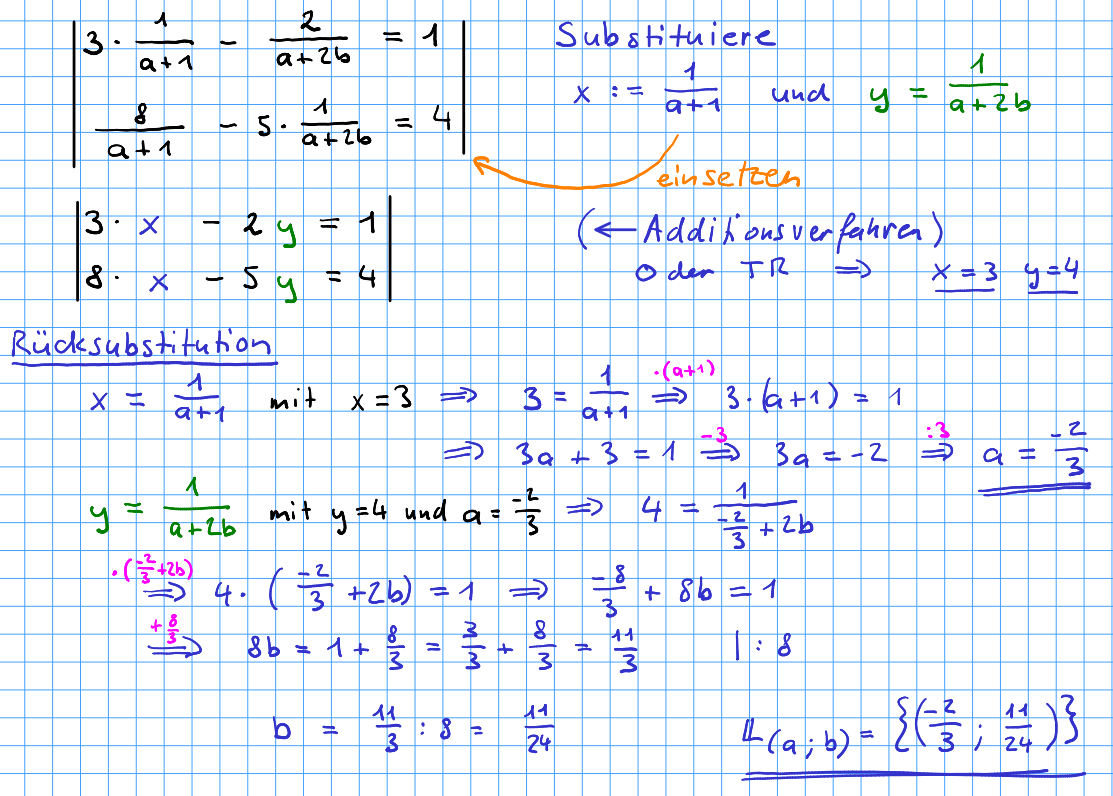 | 3 · 1/(a+1) − 2/(a+2b) = 1 |
| 8/(a+1) − 5 · 1/(a+2b) = 4 |
Substituiere
x := 1/(a+1) und y = 1/(a+2b)
einsetzen
| 3 · x − 2 y = 1 |
| 8 · x − 5 y = 4 |
(← Additionsverfahren)
Oder TR ⇒ x = 3 y = 4
Rücksubstitution
x = 1/(a+1) mit x = 3 ⇒ 3 = 1/(a+1) ·(a+1) ⇒ 3 · (a+1) = 1
⇒ 3a + 3 = 1 −3 ⇒ 3a = −2 :3 ⇒ a = −2/3
y = 1/(a+2b) mit y = 4 und a = −2/3 ⇒ 4 = 1/(−2/3 + 2b)
·(−2/3 + 2b) ⇒ 4 · (−2/3 + 2b) = 1 ⇒ −8/3 + 8b = 1
+8/3 ⇒ 8b = 1 + 8/3 = 3/3 + 8/3 = 11/3 | : 8
b = 11/3 : 8 = 11/24
𝕃(a ; b) = {(−2/3 ; 11/24)}